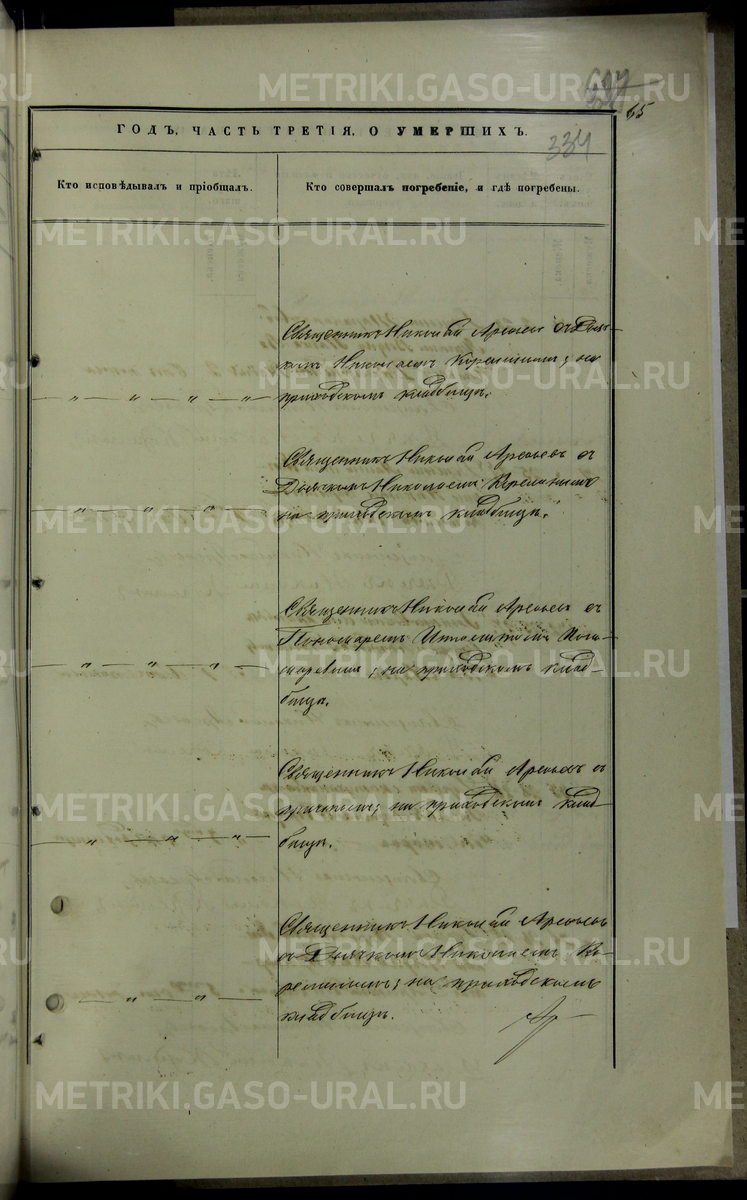 65
334
ГОДЪ, ЧАСТЬ ТРЕТІЯ, О УМЕРШИХЪ.
Кто исповѣдывалъ и пріобщалъ.
Кто совершалъ погребеніе, и гдѣ погребены.
Священникъ Николай Арефьевъ съ Дьяч-
комъ Николаемъ; на
— „ — „ — „ — „ —
приходскомъ кладбищѣ.
Священникъ Николай Арефьевъ съ
Дьячкомъ Николаемъ
— „ — „ — „ —
на приходскомъ кладбищѣ.
Священникъ Николай Арефьевъ съ
Пономаремъ Поно-
— „ — „ — „ —
маревымъ; на приходскомъ клад-
бищѣ.
Священникъ Николай Арефьевъ съ
причтомъ; на приходскомъ клад-
— „ — „ — „ —
бищѣ.
Священникъ Николай Арефьевъ
съ Дьячкомъ Николаемъ
— „ — „ —
на приходскомъ
кладбищѣ.
METRIKI.GASO-URAL.RU